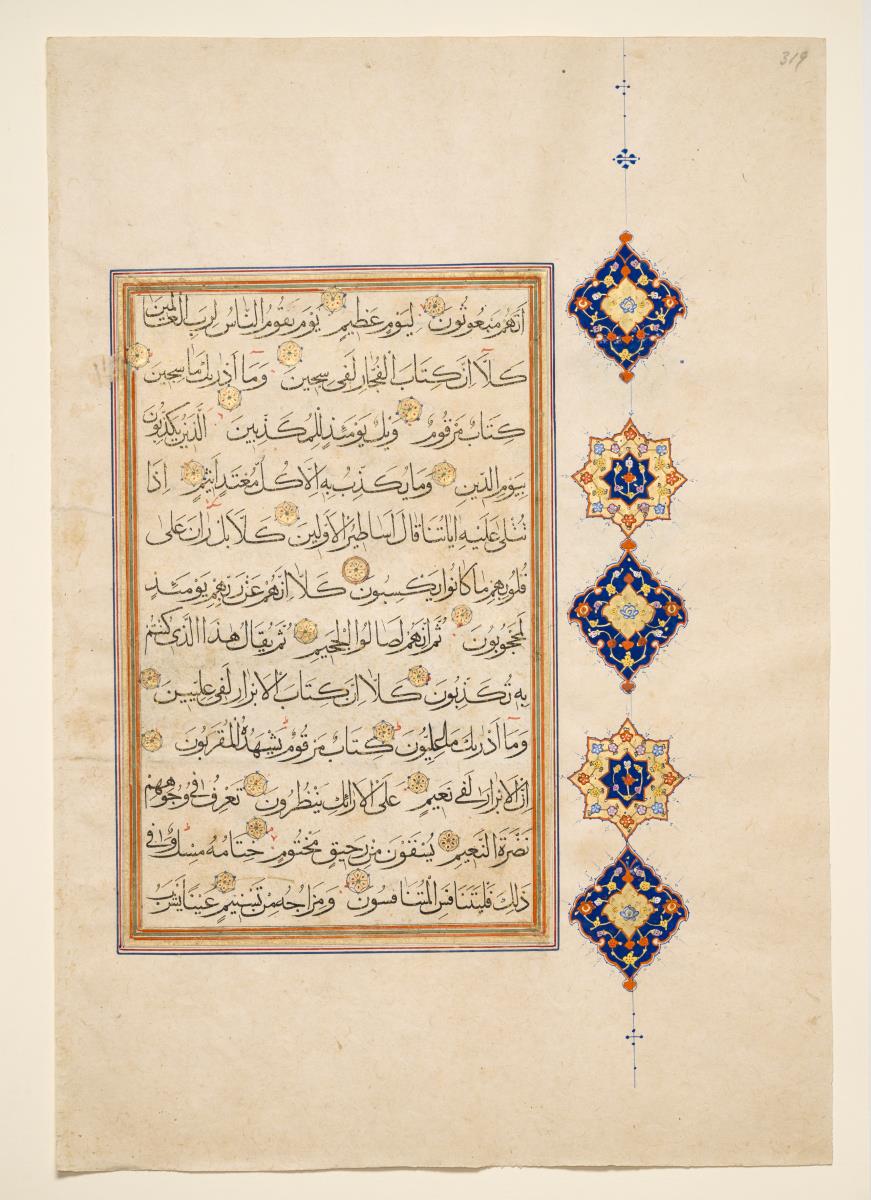 319
أَنَّهُمْ مَبْعُوثُونَ لِيَوْمٍ عَظِيمٍ يَوْمَ يَقُومُ النَّاسُ لِرَبِّ الْعَالَمِينَ
كَلَّا إِنَّ كِتَابَ الْفُجَّارِ لَفِي سِجِّينٍ وَمَا أَدْرَاكَ مَا سِجِّينٌ
كِتَابٌ مَرْقُومٌ وَيْلٌ يَوْمَئِذٍ لِلْمُكَذِّبِينَ الَّذِينَ يُكَذِّبُونَ
بِيَوْمِ الدِّينِ وَمَا يُكَذِّبُ بِهِ إِلَّا كُلُّ مُعْتَدٍ أَثِيمٍ إِذَا
تُتْلَى عَلَيْهِ آيَاتُنَا قَالَ أَسَاطِيرُ الْأَوَّلِينَ كَلَّا بَلْ رَانَ عَلَى
قُلُوبِهِمْ مَا كَانُوا يَكْسِبُونَ كَلَّا إِنَّهُمْ عَنْ رَبِّهِمْ يَوْمَئِذٍ
لَمَحْجُوبُونَ ثُمَّ إِنَّهُمْ لَصَالُوا الْجَحِيمِ ثُمَّ يُقَالُ هَذَا الَّذِي كُنْتُمْ
بِهِ تُكَذِّبُونَ كَلَّا إِنَّ كِتَابَ الْأَبْرَارِ لَفِي عِلِّيِّينَ
وَمَا أَدْرَاكَ مَا عِلِّيُّونَ كِتَابٌ مَرْقُومٌ يَشْهَدُهُ الْمُقَرَّبُونَ
إِنَّ الْأَبْرَارَ لَفِي نَعِيمٍ عَلَى الْأَرَائِكِ يَنْظُرُونَ تَعْرِفُ فِي وُجُوهِهِمْ
نَضْرَةَ النَّعِيمِ يُسْقَوْنَ مِنْ رَحِيقٍ مَخْتُومٍ خِتَامُهُ مِسْكٌ وَفِي
ذَلِكَ فَلْيَتَنَافَسِ الْمُتَنَافِسُونَ وَمِزَاجُهُ مِنْ تَسْنِيمٍ عَيْنًا يَشْرَبُ